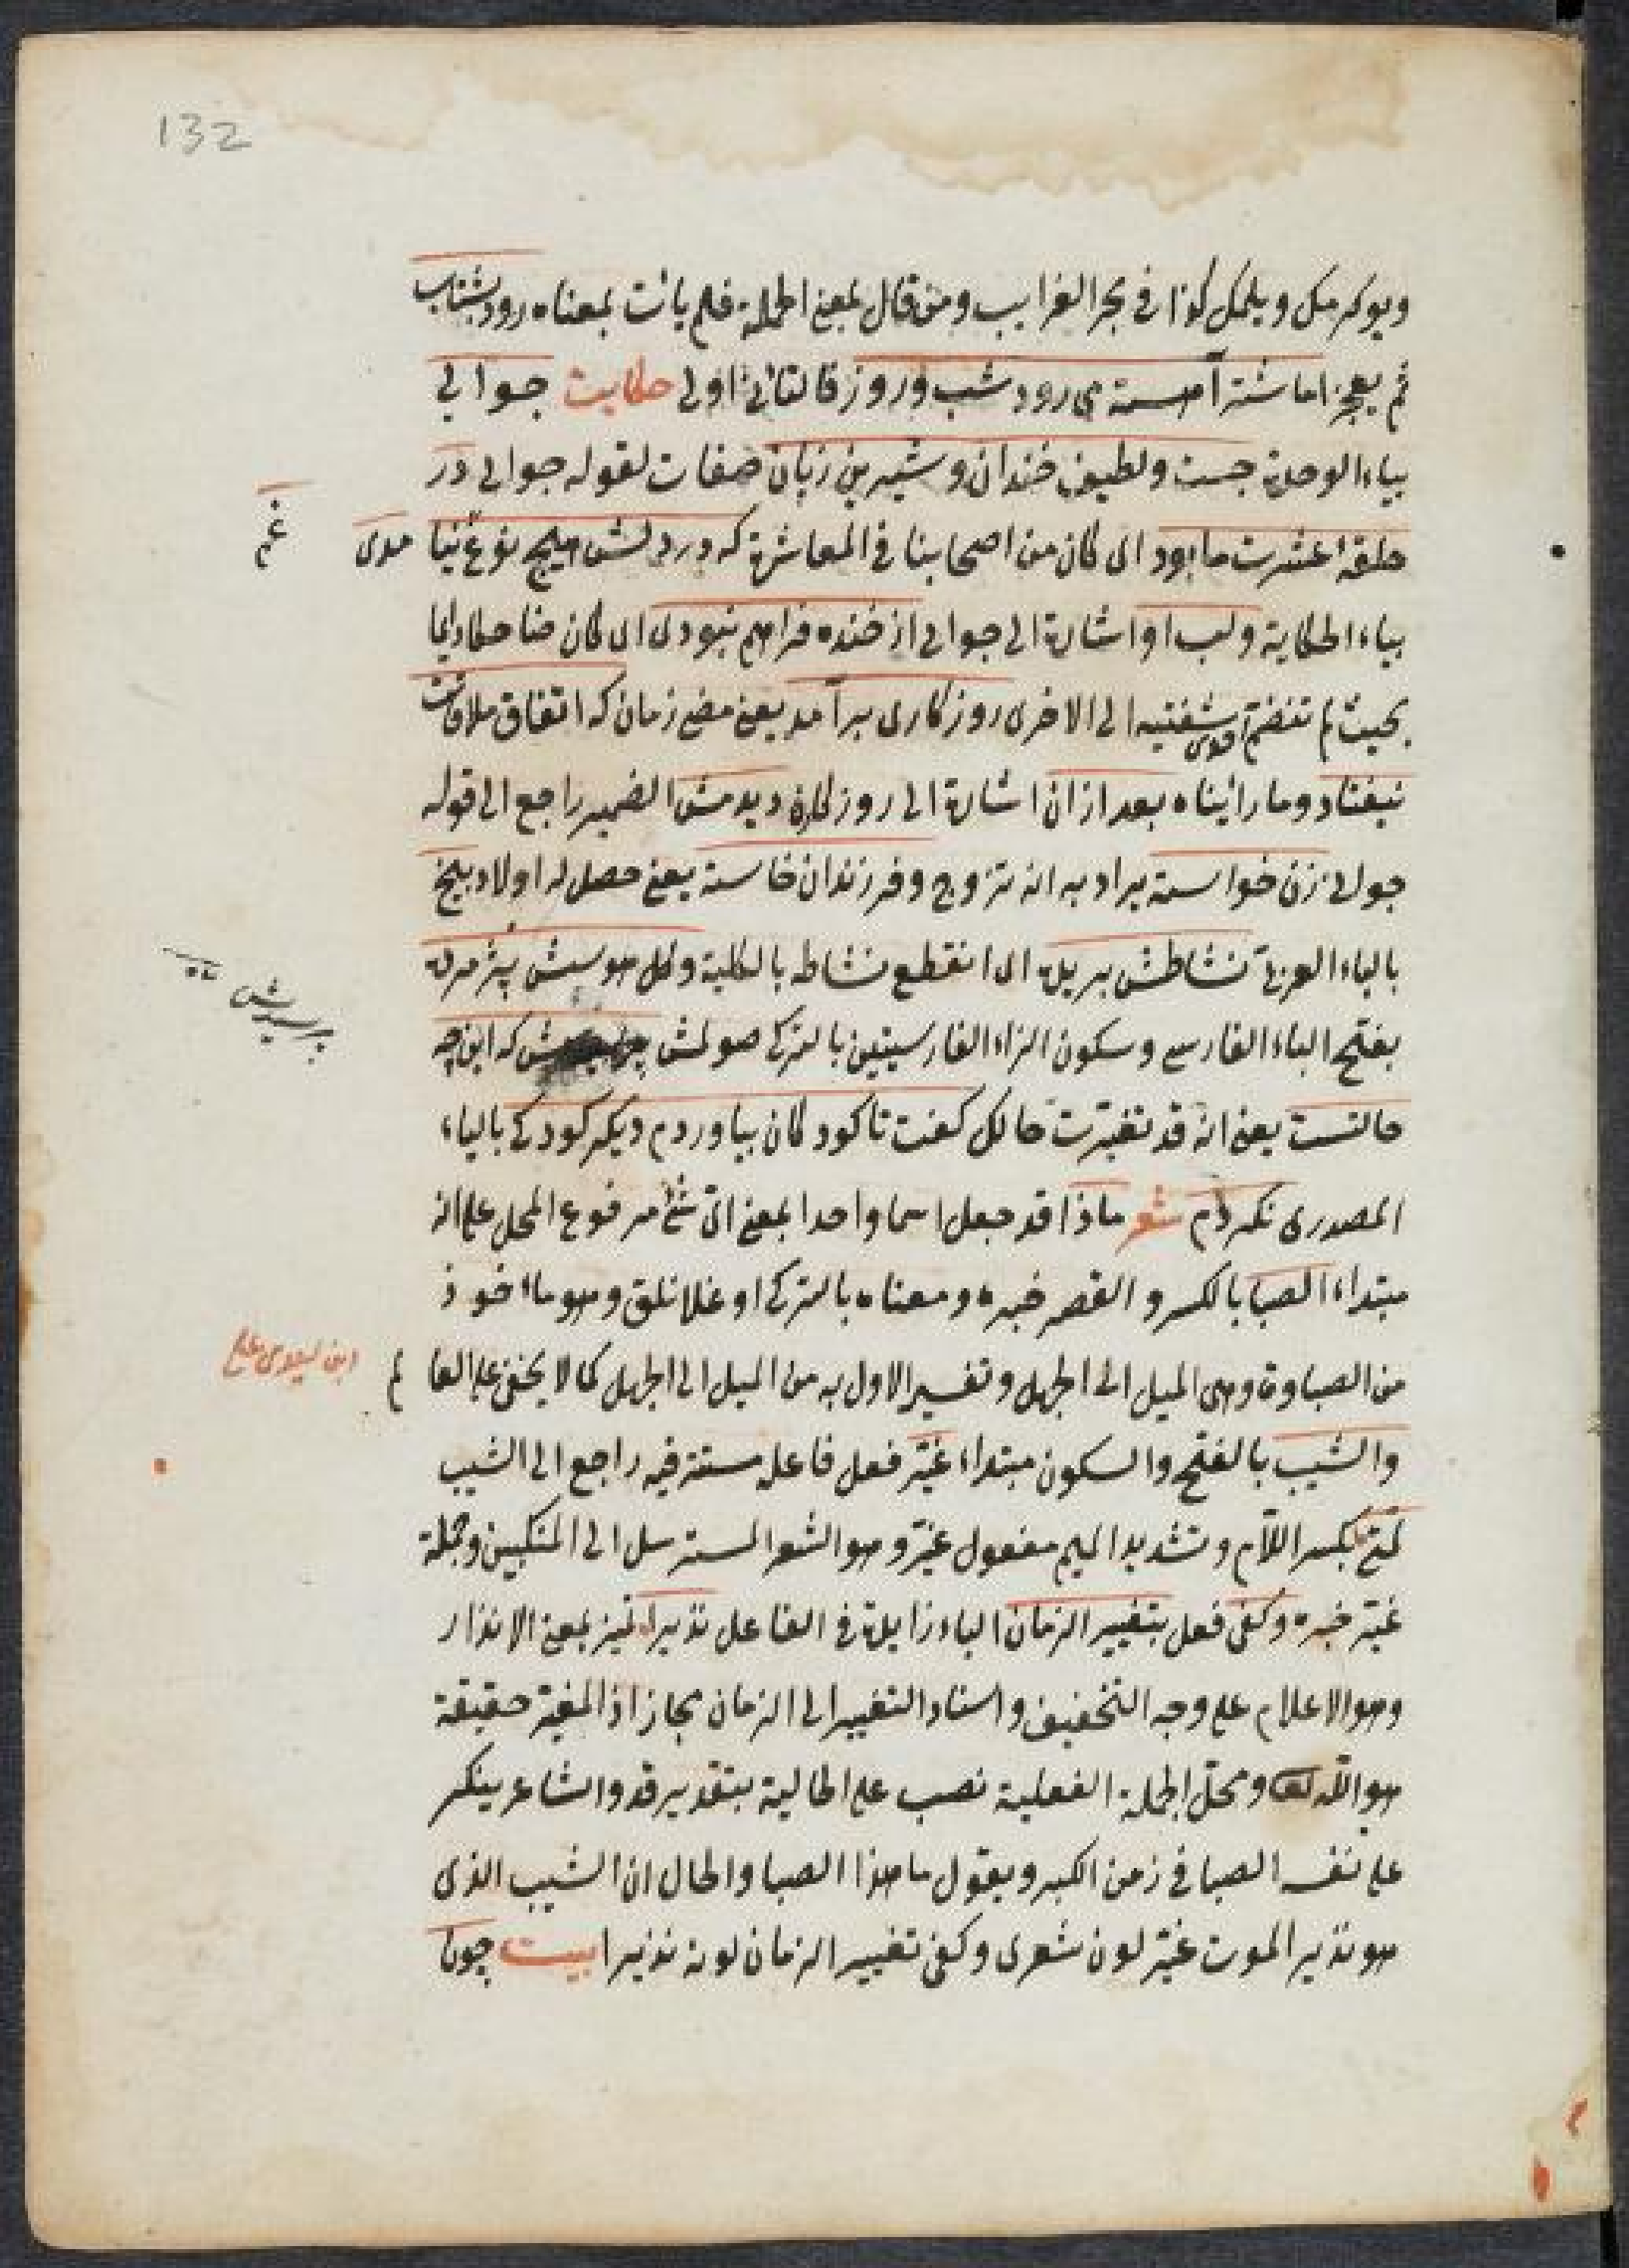 132
ويوكرمك ويلمك كذا فى بحر الغرايب ومن قال بمعنى الحملة فلم يأت بمعناه رود بشتاب
ثم يعجز اما شتر آهسته مى رود شب وروز فالتأنى اولى حكايت جوانى
بياء الوحدة جست ولطيف خندان وشيرين زبان صفات لقوله جوانى در
حلقه عشرت ما بود اى كان من اصحابنا فى المعاشرة كه در دلش هيچ نوع نيا مدى غم
بياء الحكاية ولب او اشارة الى جوانى از خنده فراهم نبودى اى كان ضاحكا دايما
بحيث لم تنضم احدى شفتيه الى الاخرى روزكارى برآمد يعنى مضى زمان كه اتفاق ملاقات
نيفتاد وما رايناه بعد ازان اشارة الى روزكار ديدمش الضمير راجع الى قوله
جوانى زن خواسته يراد به انه تزوج وفرزندان خاسته يعنى حصل له اولاد بيخ
بالباء العربية نشاطش بريده اى انقطع نشاطه بالكلية وكل هوسش پژمرده
بفتح الباء الفارسى وسكون الزاء الفارسيتين بالتركى صولمش كه اين چه
پرسيدمش
حالتست يعنى انه قد تغيرت حالك كفت تا كودكان بياوردم ديكر كودكى بالياء
المصدرى نكردم شعر ماذا قد جعل اسما واحدا بمعنى اى شئ مرفوع المحل على انه
مبتداء الصبا بالكسر والقصر خبره ومعناه بالتركى اوغلانلق وهو مأخوذ
من الصباوة وهى الميل الى الجهل وتفسير الاول به من الميل الى الجهل كما لا يخفى على العا لم
والشيب بالفتح والسكون مبتداء غيّر فعل فاعله مستتر فيه راجع الى الشيب
لمتى بكسر اللام وتشديد الميم مفعول غيّر وهو الشعر المسترسل الى المنكبين وجملة
غيّر خبره وكفى فعل بتغيير الزمان الباء زايدة فى الفاعل نذيرا تميز بمعنى الانذار
وهو الاعلام على وجه التخفيف واسناد التغيير الى الزمان مجاز اذ المغيّر حقيقة
هو الله تعالى ومحل الجملة الفعلية نصب على الحالية بتقدير قد والشاعر ينكر
على نفسه الصبا فى زمن الكبر ويقول ما هذا الصبا والحال ان الشيب الذى
هو نذير الموت غيّر لون شعرى وكفى تغيير الزمان لونه نذيرا بيت چون